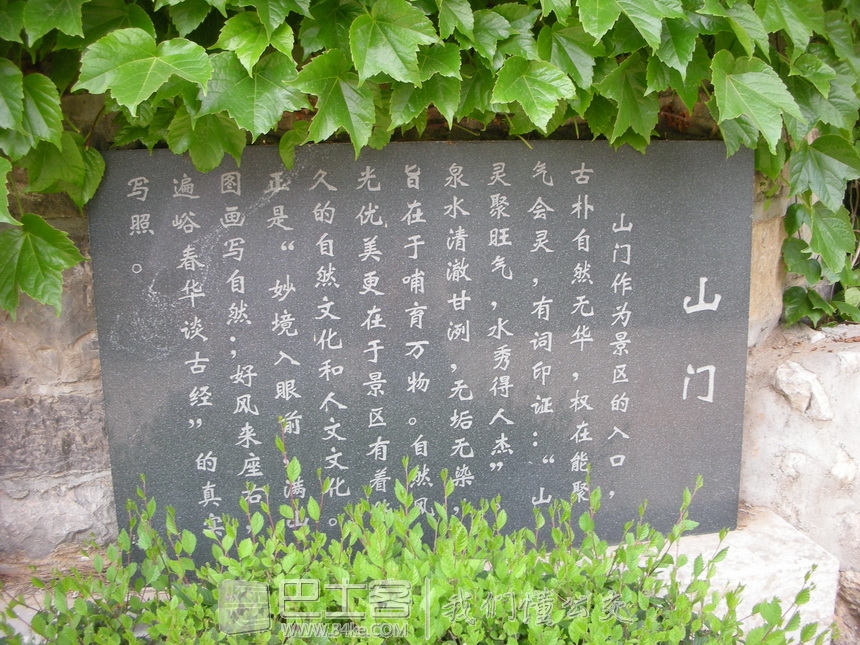 山门
山门作为景区的入口，
古朴自然无华，权在能聚
气会灵，有词印证：“山
灵聚旺气，水秀得人杰”
泉水清澈甘洌，无垢无染，
旨在于哺育万物。自然风
光优美更在于景区有着
久的自然文化和人文文化。
正是“妙境入眼前，满山
图画写自然；好风来座右，
遍峪春华谈古经”的真实
写照。
巴士客
www.84ke.com
我们懂公交